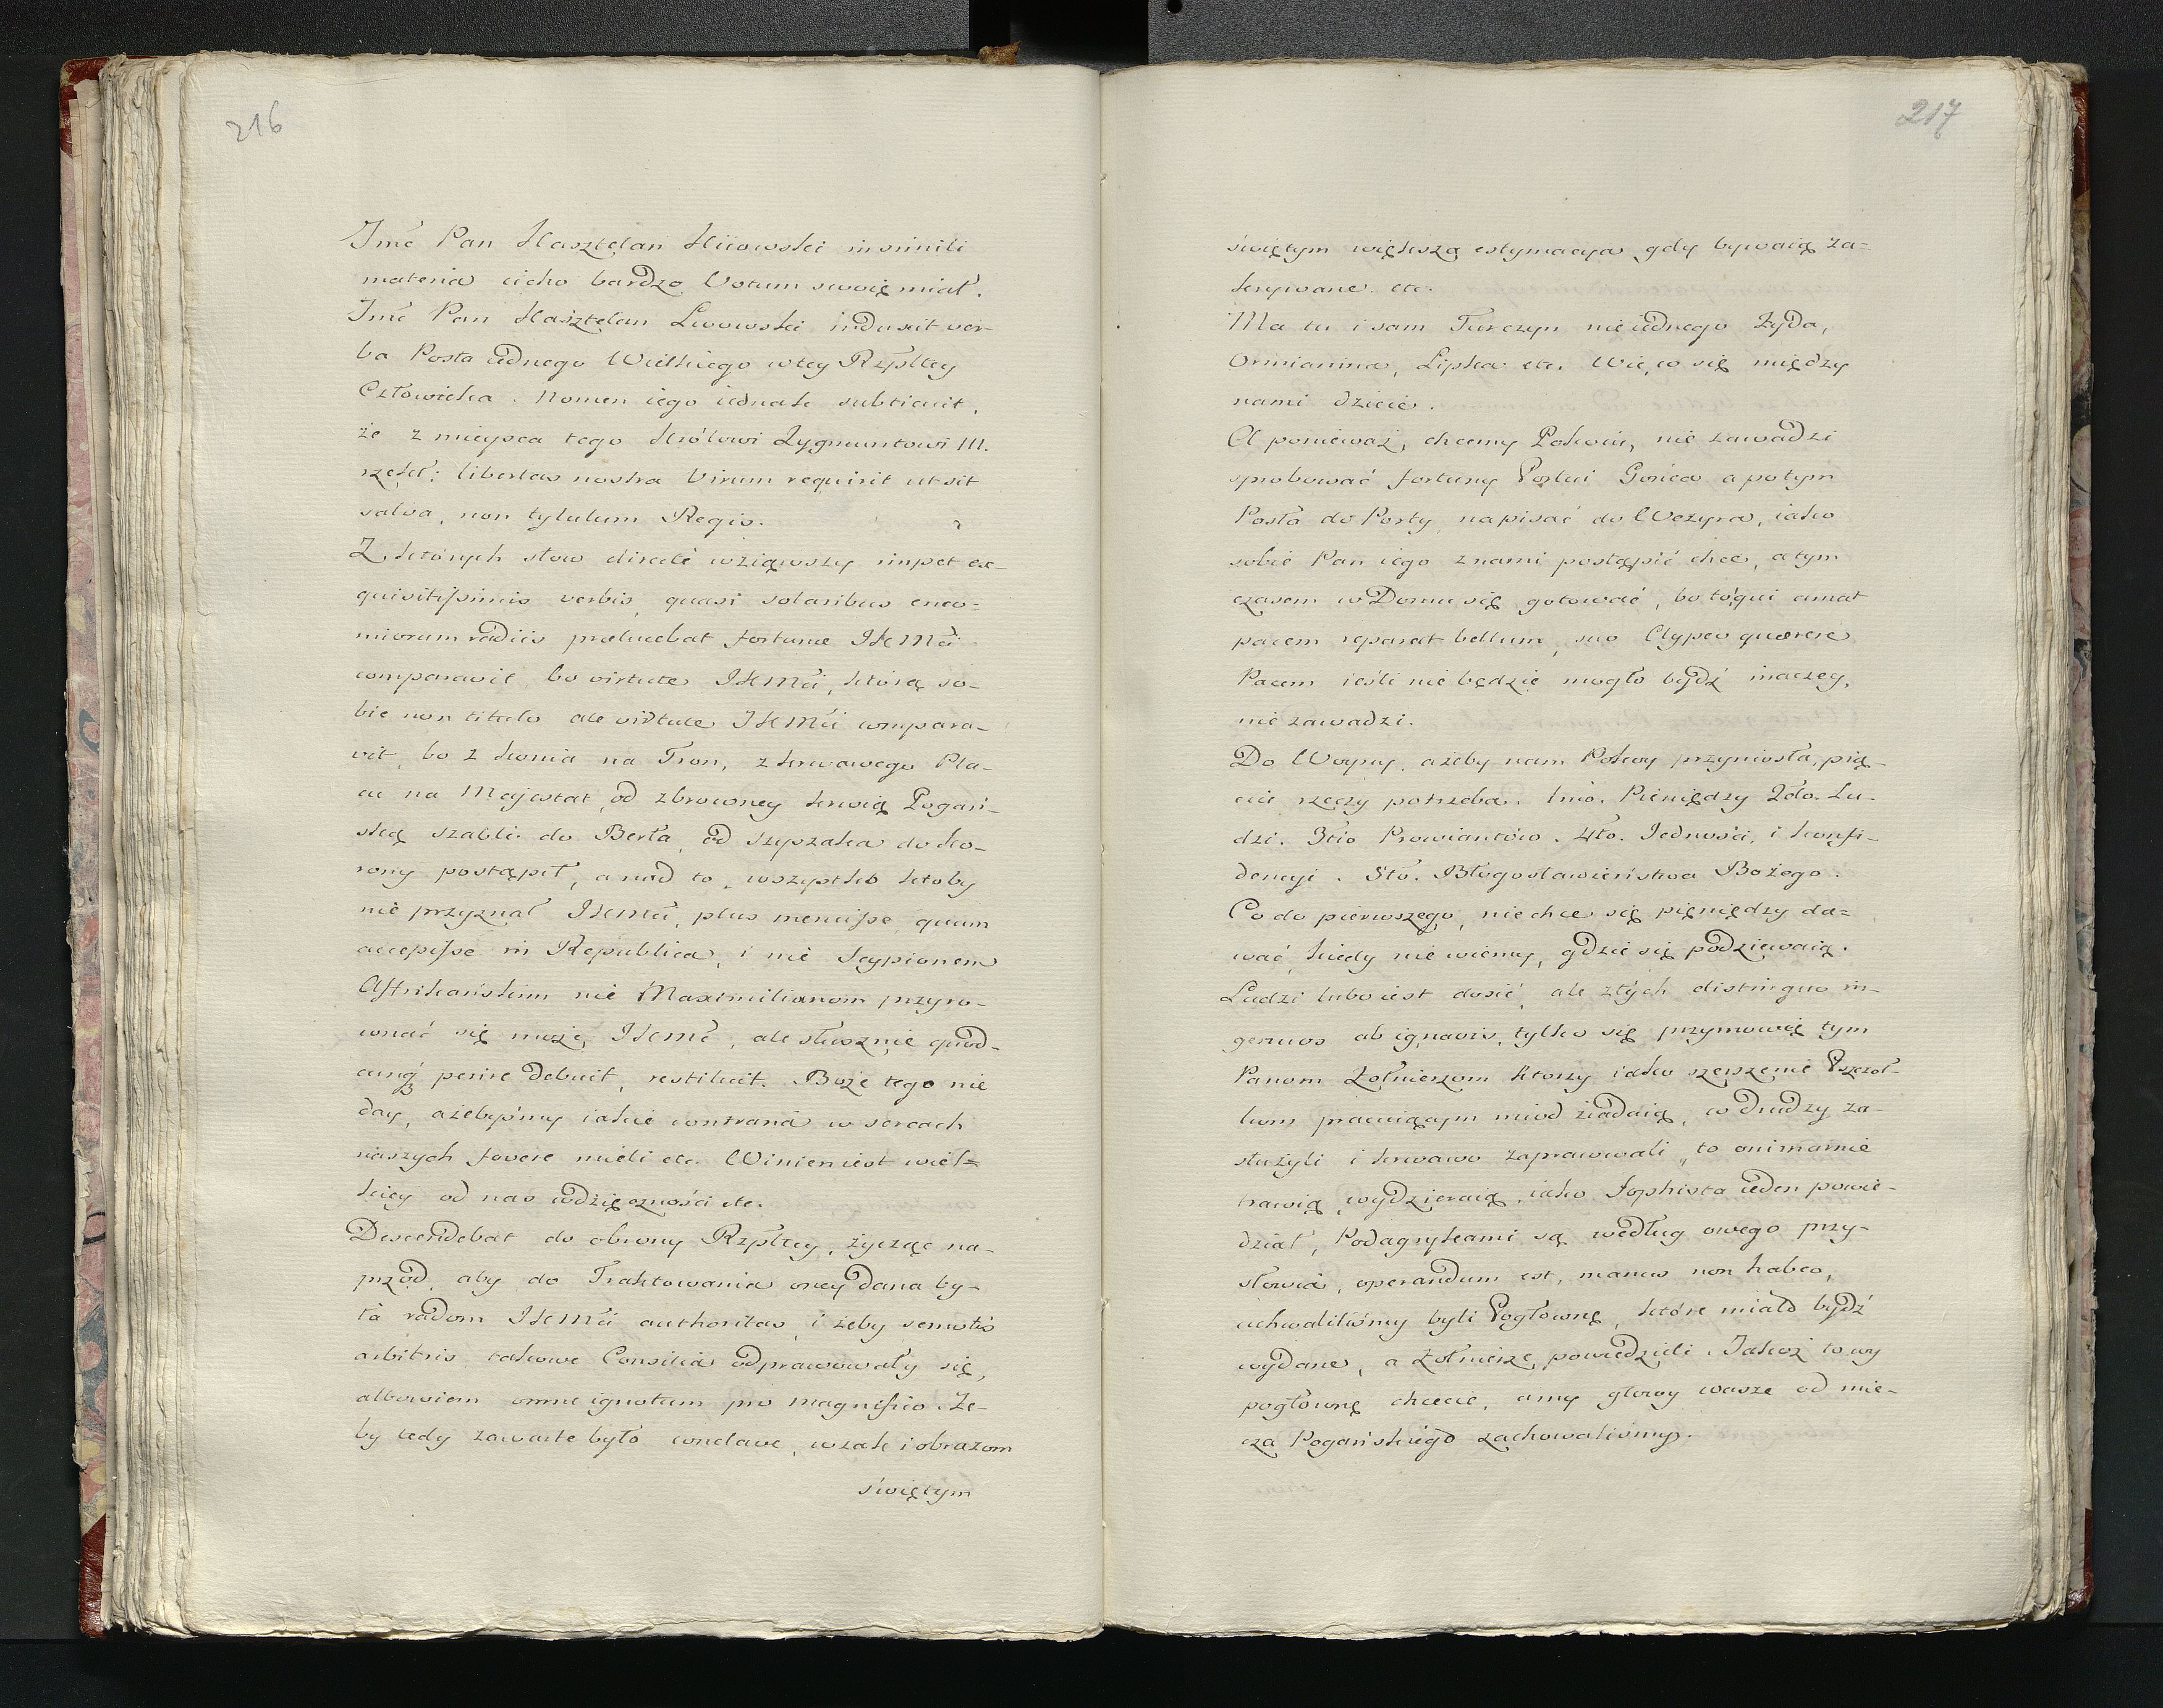 216
Jmć Pan Kasztelan Kiiowski in simili
materia cicho bardzo Votum swoię miał.
Jmć Pan Kasztelan Lwowski induxit ver-
ba Posła iednego Wielkiego w tey Rzpltey
Człowieka. Nomen iego iednak subticuit,
że z mieysca tego Królowi Zygmuntowi III.
rzekł: libertas nostra Virum requirit ut sit
salva, non tytulum Regis.
Z których słow directé wziąwszy impet ex-
quisitissimis verbis, quasi solaribus enco-
miorum radiis prælucebat fortunæ JKMći
comparavit, bo virtute JKMći, którą so-
bie non titulo ale virtute JKMći compara-
vit, bo z konia na Tron, z krwawego Pla-
cu na Majestat, od zbroczoney krwią Pogań-
ską szabli do Berła, od Szyszaka do ko-
rony postąpił, a nad to, wszystko ktoby
nie przyznał JKMći, plus meruisse quam
accepisse in Republica, i nie Scypionem
Affrikańskim nie Maximilianom przyro-
wnać się może JKMć, ale słusznie quod-
cunq; perire debuit, restituit. Boże tego nie
day, ażebyśmy iakie contraria w sercach
naszych fovere mieli etc. Winien iest wiel=
kiey od nas wdzięczności etc.
Descendebat do obrony Rzpltey, życząc na-
przod, aby do Traktowania oney dana by-
ła radom JKMći authoritas, i żeby semotis
arbitris takowe Consilia odprawowały się,
albowiem omne ignotum pro magnifico. Że-
by tedy zawarte było conclave, wszak i obrazom
świętym
217
świętym większa estymacya gdy bywaią za=
krywane. etc.
Ma tu i sam Turczyn nie iednego Żyda,
Ormianina, Lipka etc. Wie, co się między
nami dzieie.
A ponieważ, chcemy Pokoiu, nie zawadzi
sprobować fortuny Posłać Gońca a potym
Posła do Porty, napisać do Wezyra, iako
sobie Pan iego z nami postąpić chce, a tym
czasem w Domu się gotować, bo to, qui amat
pacem reparat bellum, suo Clypeo quærere
Pacem ieśli nie będzie mogło bydź inaczey,
nie zawadzi.
Do Woyny, ażeby nam Pokoy przyniosła, pię-
ciu rzeczy potrzeba. 1mo. Pieniędzy 2do. Lu-
dzi. 3tio Prowiantów. 4to. Jedności, i konfi-
dencyi. 5to. Błogosławieństwa Bożego.
Co do pierwszego, nie chce się pięniędzy da=
wać, kiedy nie wiemy, gdzie się podziewaią.
Ludzi lubo iest dosić, ale złych distinguo in-
genuos ab ignavis, tylko się przymowię tym
Panom Żołnierzom ktorzy iako szerszenie Pszczoł-
kom pracuiącym miod ziadaią, co drudzy za-
służyli i krwawo zapracowali, to oni marnie
trawią, wydzieraią, iako Sophista ieden powie-
dział, Podagrykami są według owego przy-
słowia, operandum est, manus non habeo,
uchwaliliśmy byli Pogłownę, które miało bydź
wydane, a Żołnierze powiedzieli. Jakoż to wy
pogłownę chcecie, a my głowy wasze od mie-
cza Pogańskiego zachowaliśmy.